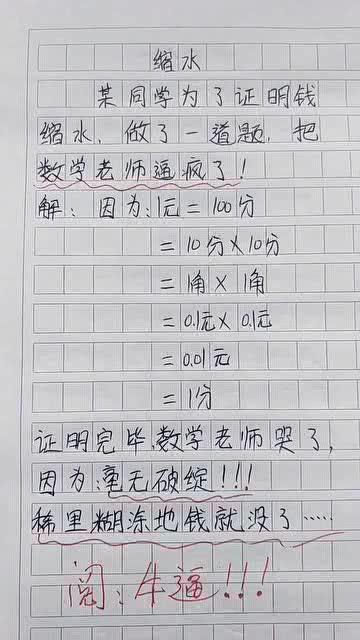 缩水
某同学为了证明钱
缩水，做了一道题，把
数学老师逼疯了！
解：因为：1元＝100分
＝10分×10分
＝1角×1角
＝0.1元×0.1元
＝0.01元
＝1分
证明完毕，数学老师哭了，
因为：毫无破绽！！！
稀里糊涂地钱就没了……
阅：牛逼！！！